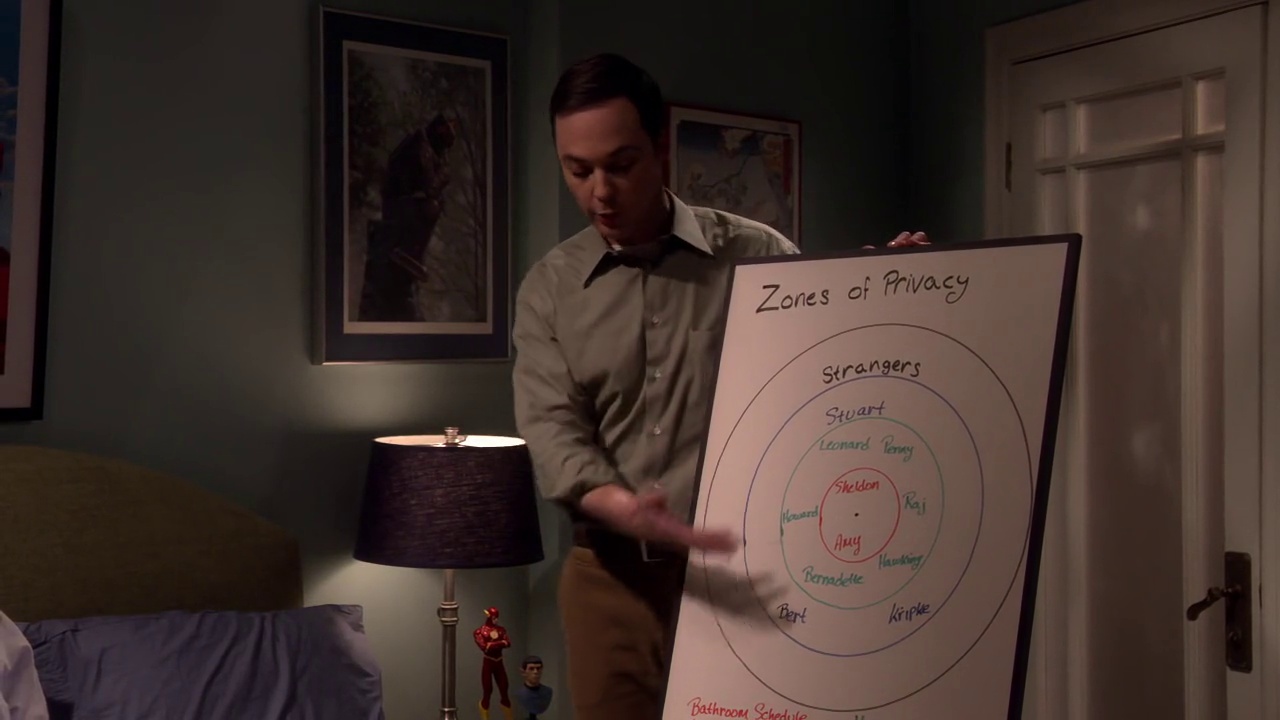 Zones of Privacy
Strangers
Stuart
Leonard Penny
Sheldon
Howard Raj
Amy
Hawking
Bernadette
Bert Kripke
Bathroom Schedule